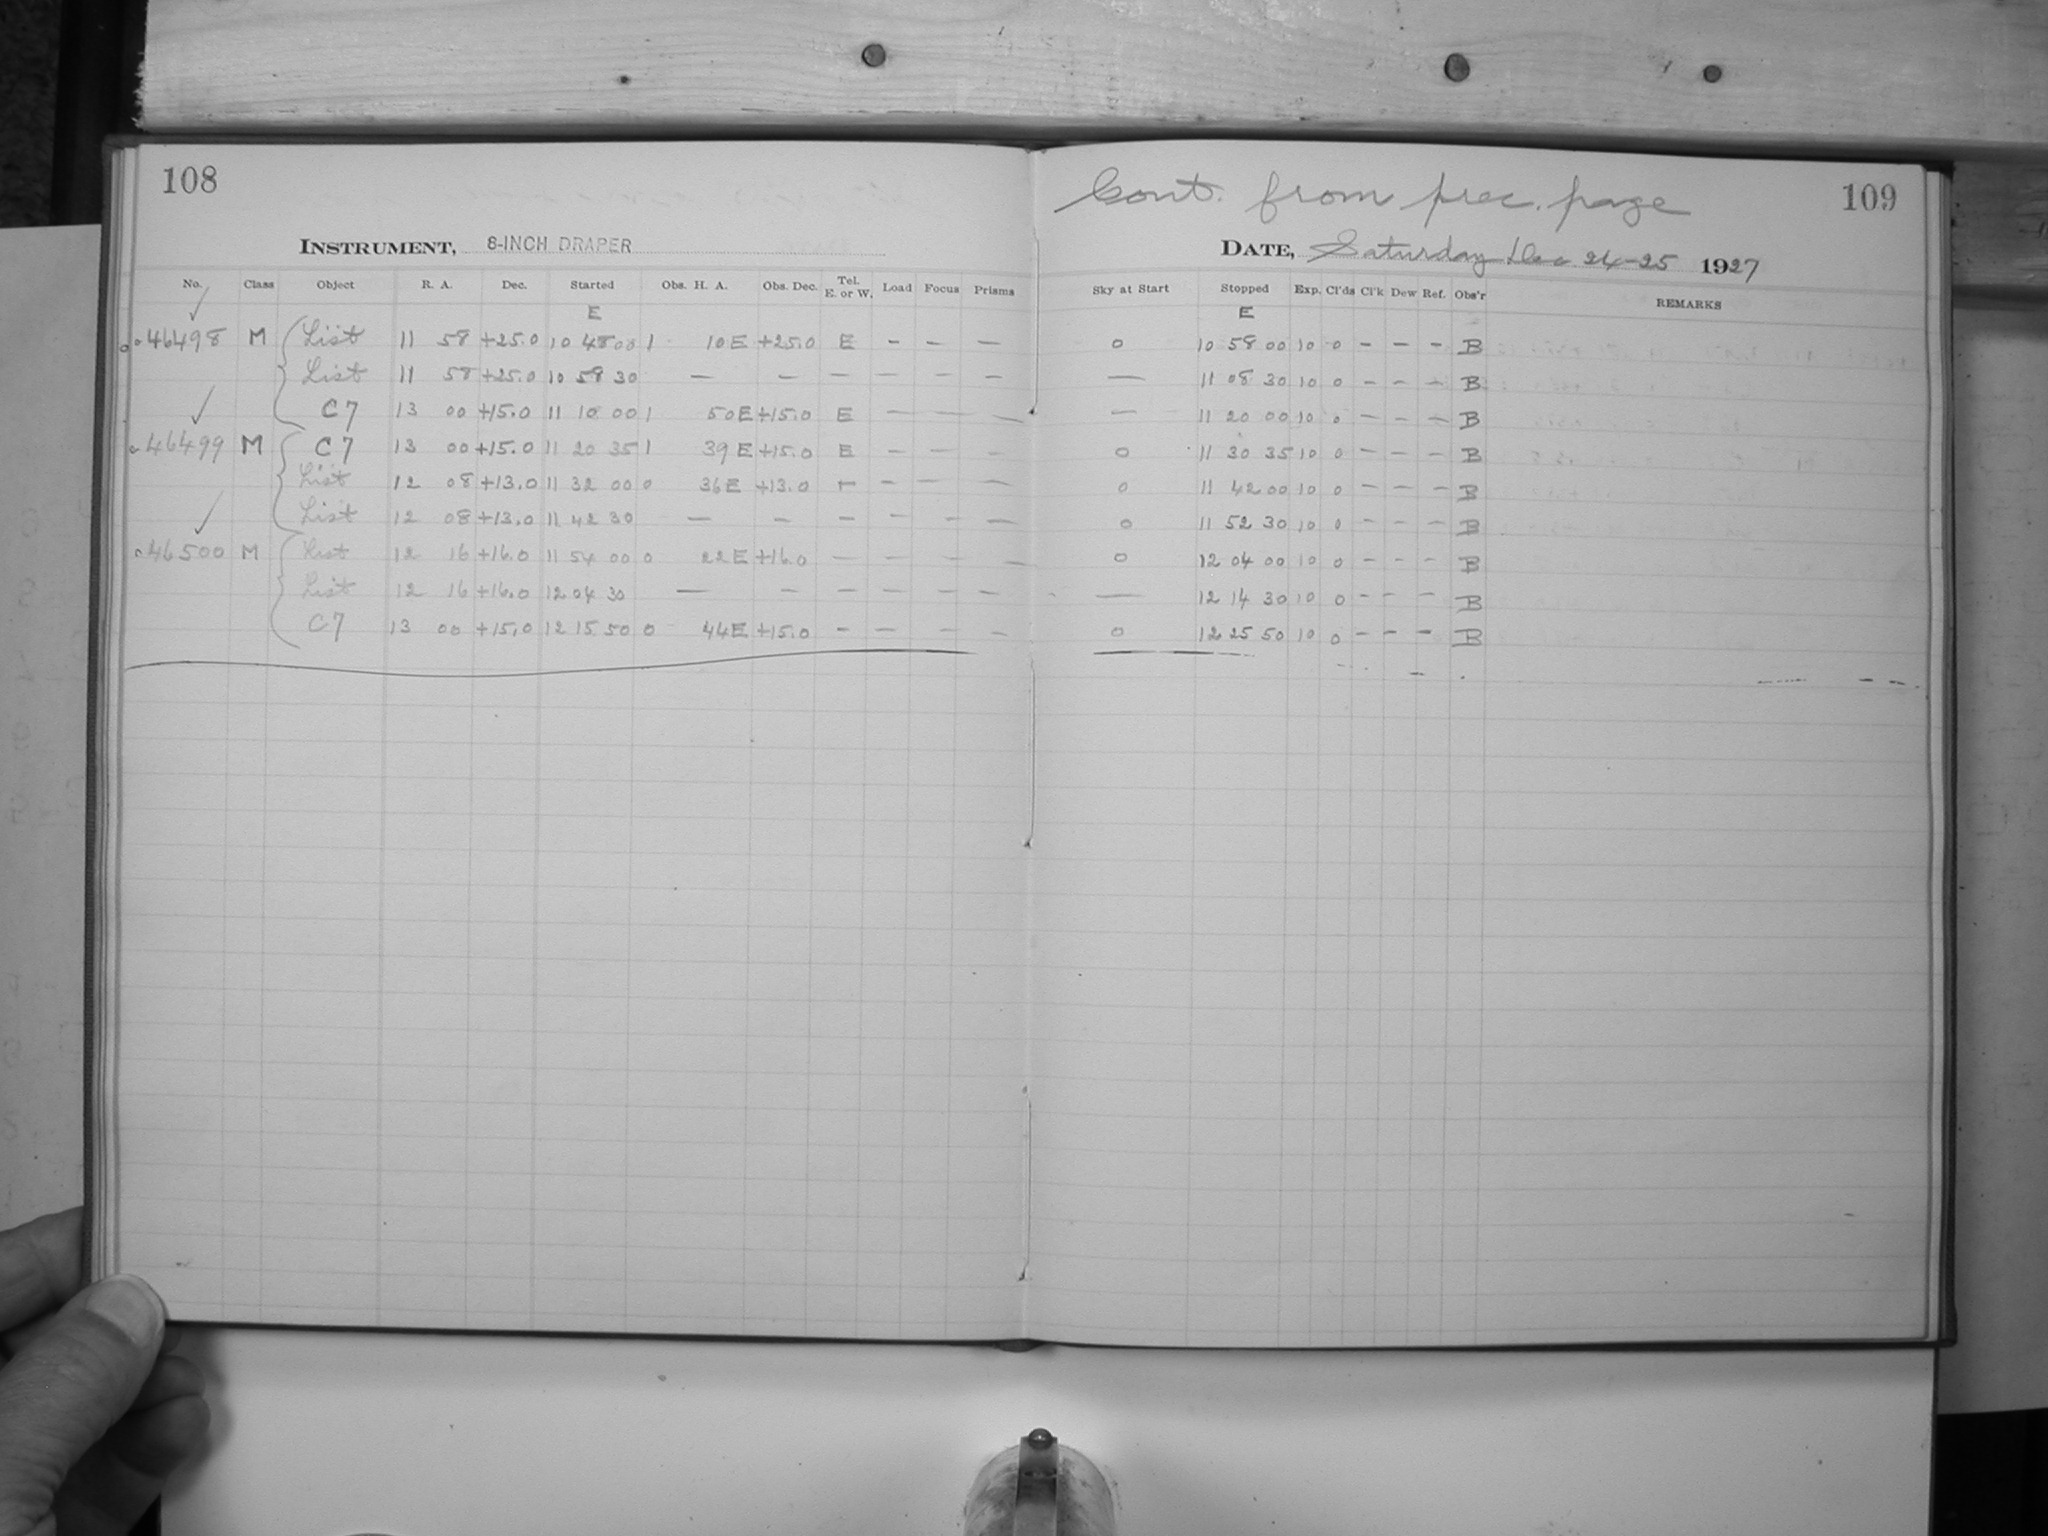 108
INSTRUMENT, 8-INCH DRAPER
No. Class Object R. A. Dec. Started Obs. H. A. Obs. Dec. Tel. E. or W. Load Focus Prisms
E
46498 M List 11 58 +25.0 10 48 00 1 10 E +25.0 E - - -
List 11 58 +25.0 10 58 30 - - - - - -
C7 13 00 +15.0 11 10 00 1 50 E +15.0 E - - -
46499 M C7 13 00 +15.0 11 20 35 1 39 E +15.0 E - - -
List 12 08 +13.0 11 32 00 0 36 E +13.0 - - - -
List 12 08 +13.0 11 42 30 - - - - - -
46500 M List 12 16 +16.0 11 54 00 0 22 E +16.0 - - - -
List 12 16 +16.0 12 04 30 - - - - - -
C7 13 00 +15.0 12 15 50 0 44 E +15.0 - - - -
Cont. from prec. page 109
DATE, Saturday Dec 24-25 1927
Sky at Start Stopped Exp. Cl'ds Cl'k Dew Ref. Obs'r REMARKS
E
0 10 58 00 10 0 - - - B
- 11 08 30 10 0 - - - B
- 11 20 00 10 0 - - - B
0 11 30 35 10 0 - - - B
0 11 42 00 10 0 - - - B
0 11 52 30 10 0 - - - B
0 12 04 00 10 0 - - - B
- 12 14 30 10 0 - - - B
0 12 25 50 10 0 - - - B